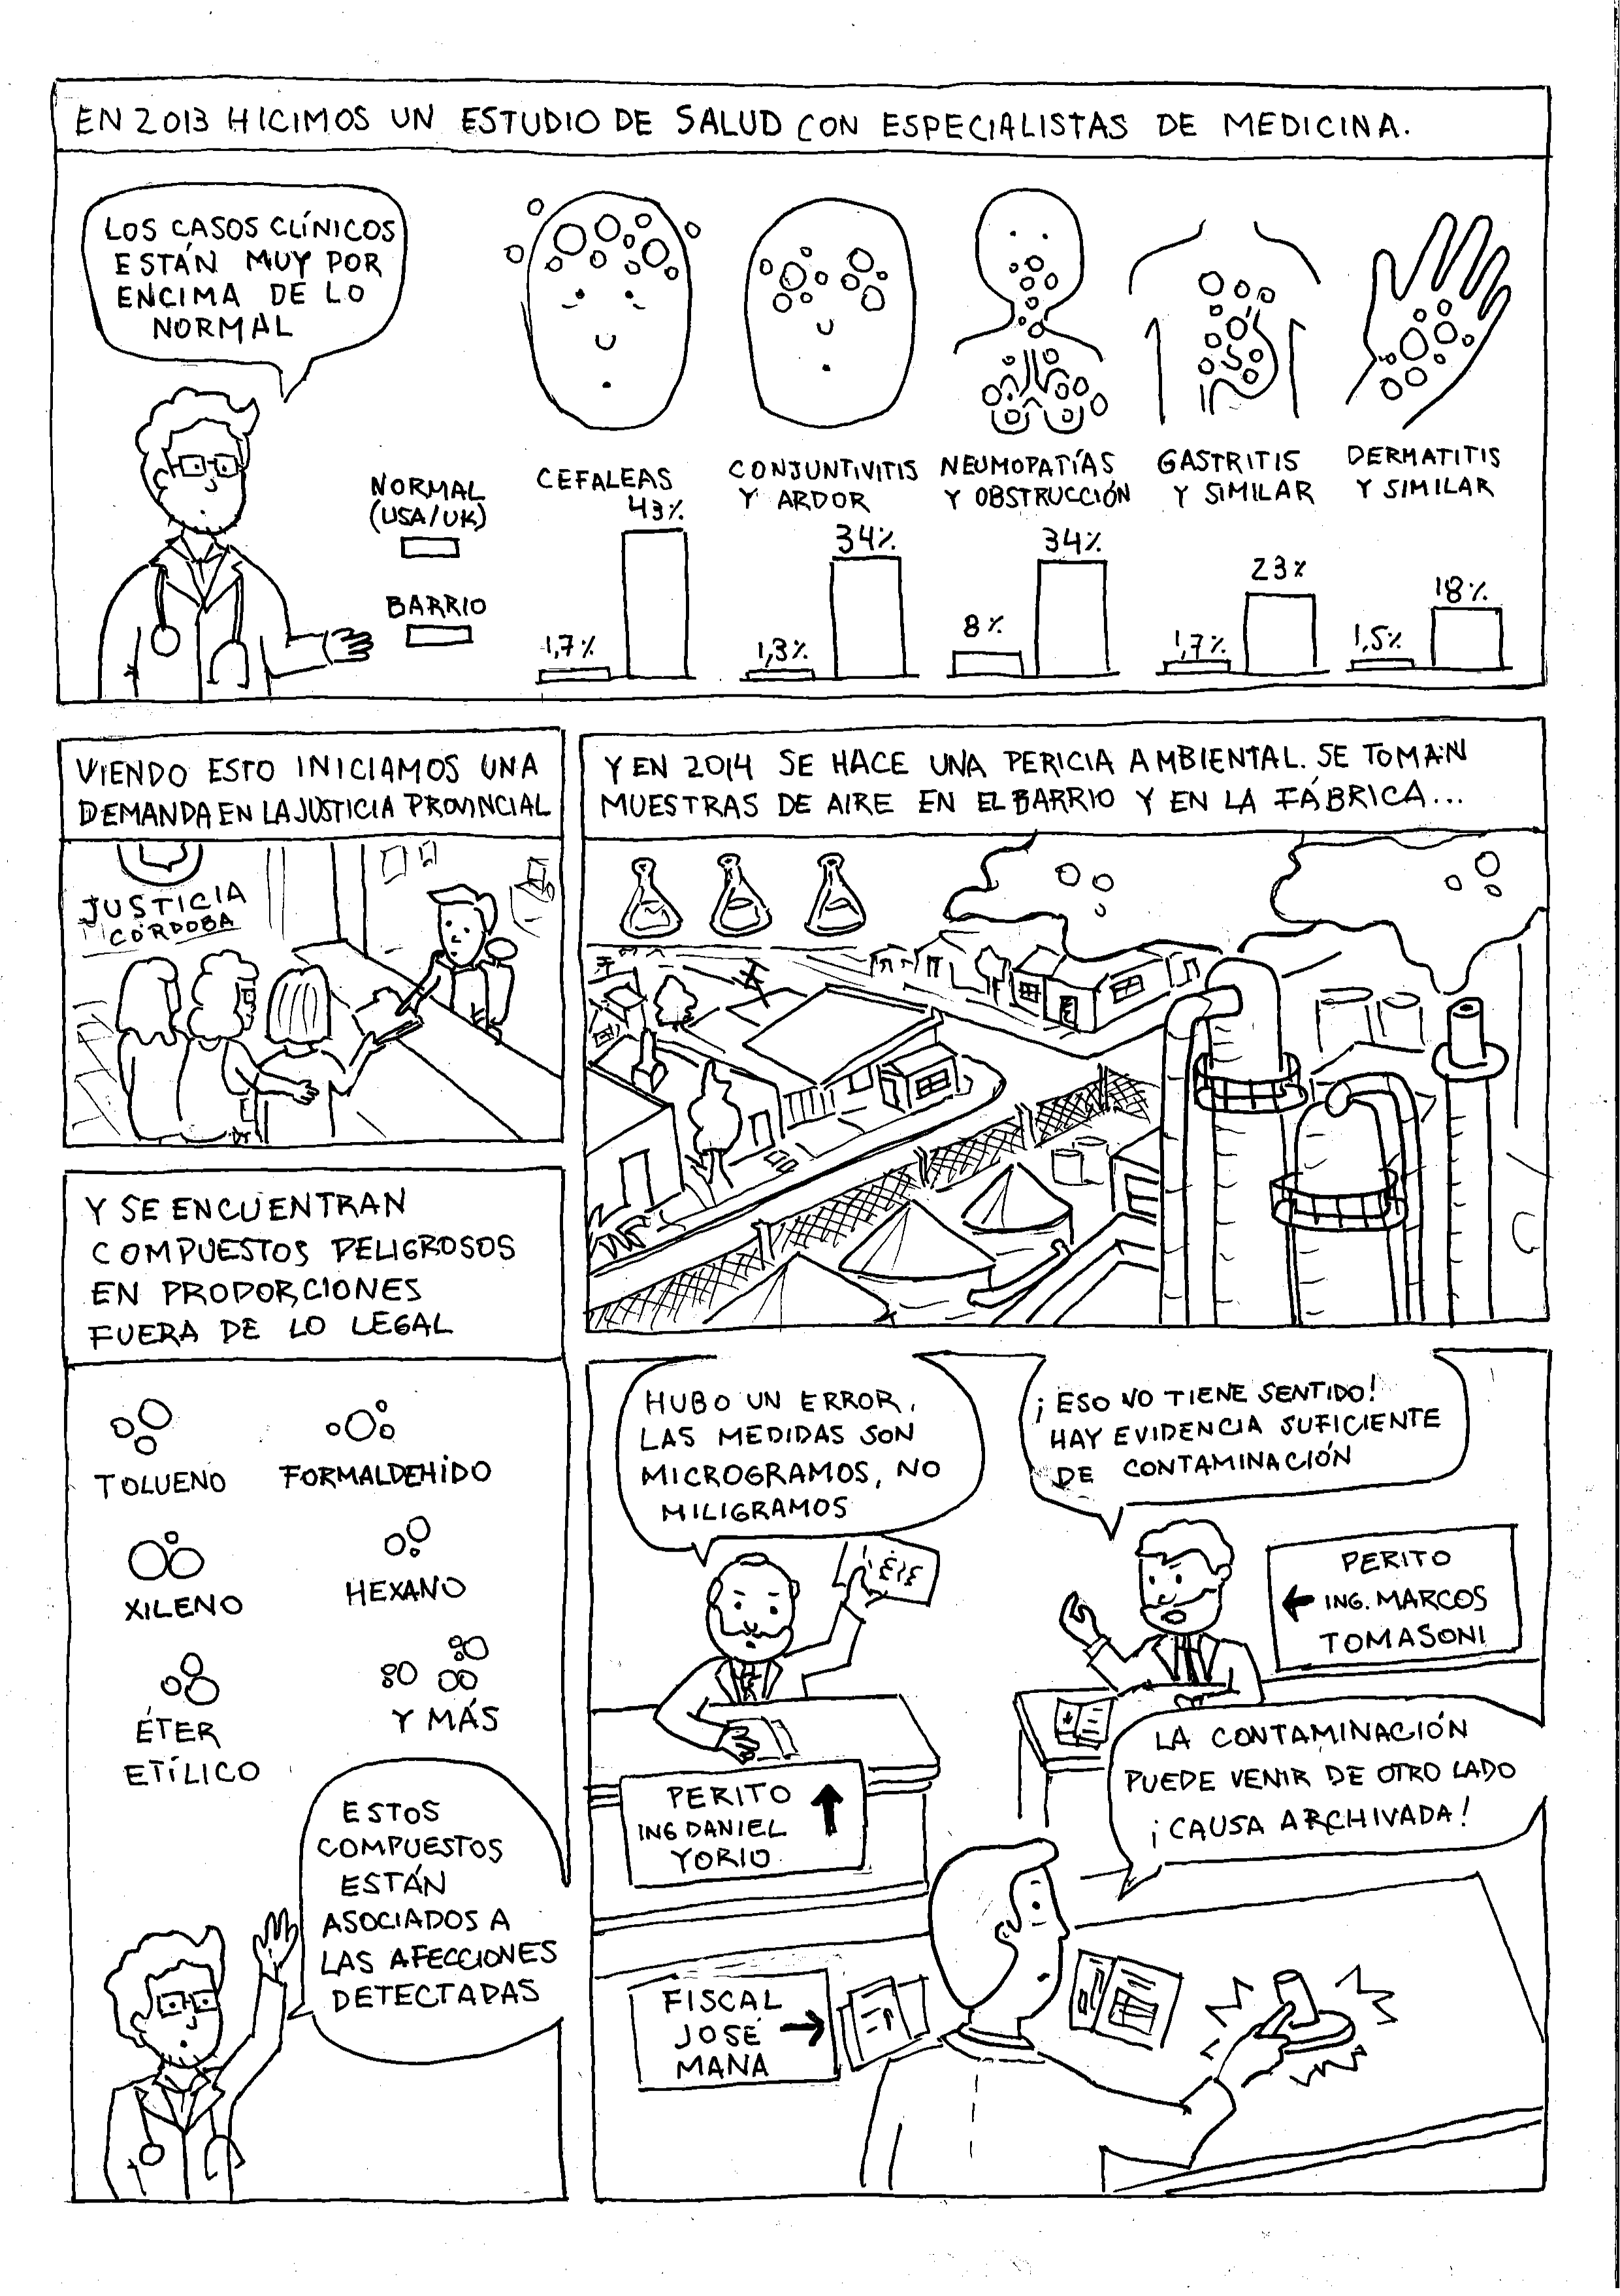 EN 2013 HICIMOS UN ESTUDIO DE SALUD CON ESPECIALISTAS DE MEDICINA.
LOS CASOS CLÍNICOS
ESTÁN MUY POR
ENCIMA DE LO
NORMAL
NORMAL
(USA/UK)
BARRIO
CEFALEAS
43%
1,7%
CONJUNTIVITIS
Y ARDOR
34%
1,3%
NEUMOPATÍAS
Y OBSTRUCCIÓN
34%
8%
GASTRITIS
Y SIMILAR
23%
1,7%
DERMATITIS
Y SIMILAR
18%
1,5%
VIENDO ESTO INICIAMOS UNA
DEMANDA EN LA JUSTICIA PROVINCIAL
JUSTICIA
CÓRDOBA
Y EN 2014 SE HACE UNA PERICIA AMBIENTAL. SE TOMAN
MUESTRAS DE AIRE EN EL BARRIO Y EN LA FÁBRICA...
Y SE ENCUENTRAN
COMPUESTOS PELIGROSOS
EN PROPORCIONES
FUERA DE LO LEGAL
TOLUENO
FORMALDEHÍDO
XILENO
HEXANO
ÉTER
ETÍLICO
Y MÁS
ESTOS
COMPUESTOS
ESTÁN
ASOCIADOS A
LAS AFECCIONES
DETECTADAS
HUBO UN ERROR,
LAS MEDIDAS SON
MICROGRAMOS, NO
MILIGRAMOS
¡ESO NO TIENE SENTIDO!
HAY EVIDENCIA SUFICIENTE
DE CONTAMINACIÓN
PERITO
ING. MARCOS
TOMASONI
PERITO
ING DANIEL
YORIO
LA CONTAMINACIÓN
PUEDE VENIR DE OTRO LADO
¡CAUSA ARCHIVADA!
FISCAL
JOSÉ
MANA